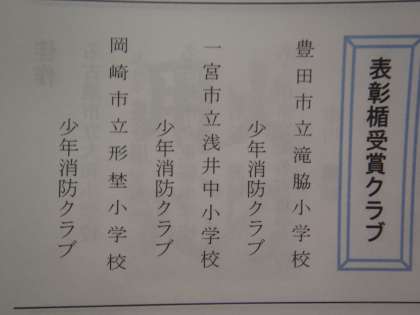 表彰楯受賞クラブ
豊田市立滝脇小学校
少年消防クラブ
一宮市立浅井中小学校
少年消防クラブ
岡崎市立形埜小学校
少年消防クラブ